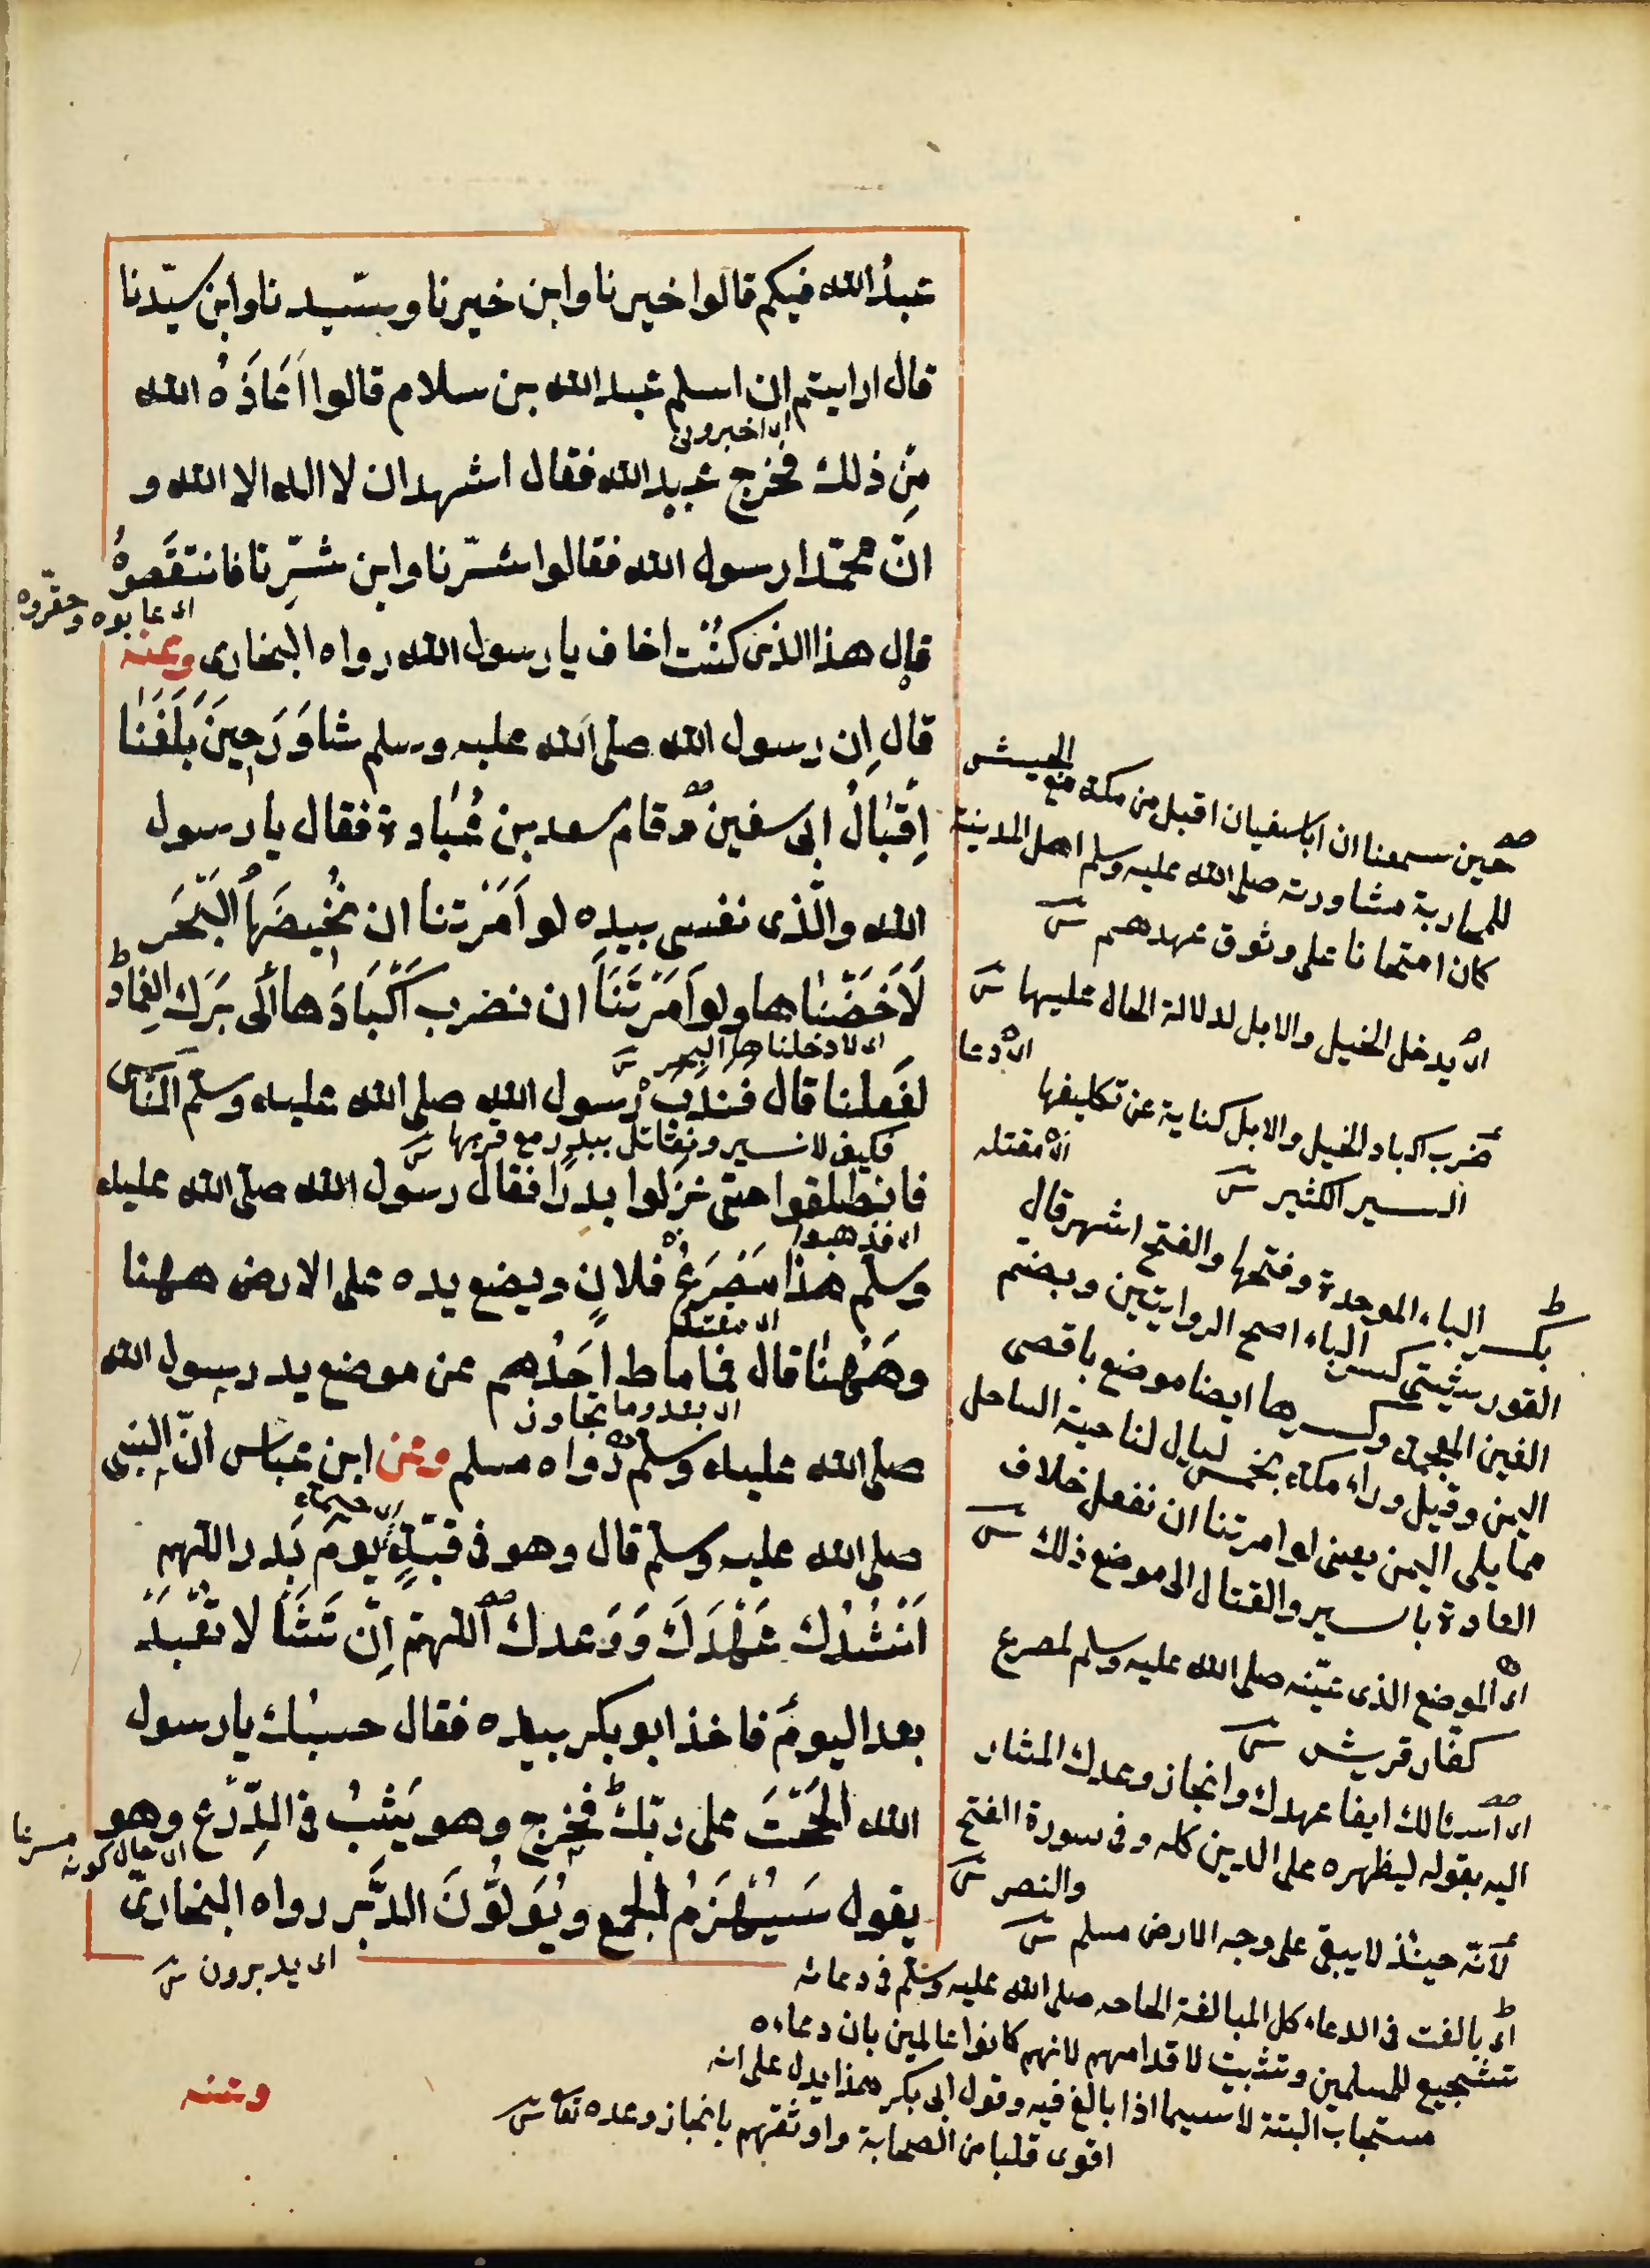 عبدُ الله فيكم قالوا خيرنا وابن خيرنا وسيّدنا وابن سيّدنا
قال ارايتم ان اسلم عبد الله بن سلام قالوا اَعَاذَهُ الله
اى اخبرونى
مِن ذلك فخرج عبد الله فقال اشهد ان لا اله الا الله و
انّ محمّدا رسول الله فقالوا شرّنا وابن شرِّنا فانتقَصوهُ
اى عابوه وحقّروه
قال هذا الذى كنتُ اخاف يا رسول الله رواه البخارى وعنه
قال ان رسول الله صلى الله عليه وسلم شاوَرَ حِينَ بَلَغَنَا
اِقبَالُ ابى سفين وقام سعد بن عُبادة فقال يا رسول
الله والّذى نفسى بيده لو اَمَرْتنا ان نُخِيضَهَا البَحْرَ
لَاَخَضْنَاها ولو اَمَرْتَنَا ان نضرب اَكْبَادَها الى بَرْك الغِمَاد
اى لادخلناها البحر ش
لفَعلنا قال فَنَدَبَ رسول الله صلى الله عليه وسلّم النّاس
فكيف لا نسير ونقاتل ببدر مع قربها ش
فانطلقوا حتى نزلوا بدرًا فقال رسول الله صلى الله عليه
اى فذهبوا
وسلم هذا مَصْرَعُ فلانٍ ويضع يده على الارض ههنا
اى مقتله
وهَهُنَا قال فما ماط احَدُهم عن موضع يد رسول الله
اى بعد وما تجاوز
صلى الله عليه وسلم رواه مسلم وعن ابن عباس انّ النبى
اى خيمة
صلى الله عليه وسلم قال وهو فى قبّةٍ يومَ بَدر اللهم
اَنْشُدُك عَهْدَكَ وَوَعدك اللهمّ اِن تَشَأْ لا تُعْبَدْ
بعد اليومَ فاخذ ابو بكر بيده فقال حسبُك يا رسول
الله اَلْحَحْتَ على ربّك فخرج وهو يَثِبُ فى الدِّرْع وهو
اى حال كونه مسرعا
يقول سَيُهْزَمُ الجمع ويُوَلُّونَ الدُّبُر رواه البخارىّ
اى يدبرون ش
وعنه
حين سمعنا ان ابا سفيان اقبل من مكة مع الجيش
للمحاربة مشاورته صلى الله عليه وسلم اهل المدينة
كان امتحانا على وثوق عهدهم ش
اى يدخل الخيل والابل لدلالة الحال عليها ش
اى دعا
ضرب اكباد الخيل والابل كناية عن تكليفها
اى مقتله
السير الكثير ش
بكسر الباء الموحدة وفتحها والفتح اشهر قال
القوربشتى كسر الباء اصح الروايتين وبضم
الغين المعجمة وكسرها ايضا موضع باقصى
اليمن وقيل وراء مكة بخمس ليال لناحية الساحل
مما يلى اليمن يعنى لو امرتنا ان نفعل خلاف
العادة بالسير والقتال الى موضع ذلك ش
اى الموضع الذى عيّنه صلى الله عليه وسلم لمصرع
كفار قريش ش
اى اسئالك ايفا عهدك وانجاز وعدك المشار
اليه بقوله ليظهره على الدين كله وفى سورة الفتح
والنصر ش
لانّه حينئذ لا يبقى على وجه الارض مسلم ش
اى بالغت فى الدعاء كل المبالغة الحاحه صلى الله عليه وسلم فى دعائه
تشجيع للمسلمين وتثبيت لاقدامهم لانهم كانوا عالمين بان دعاءه
مستجاب البتة لا سيما اذا بالغ فيه وقول ابى بكر هذا يدل على انه
اقوى قلبا من الصحابة واوثقهم بانجاز وعده تعا ش